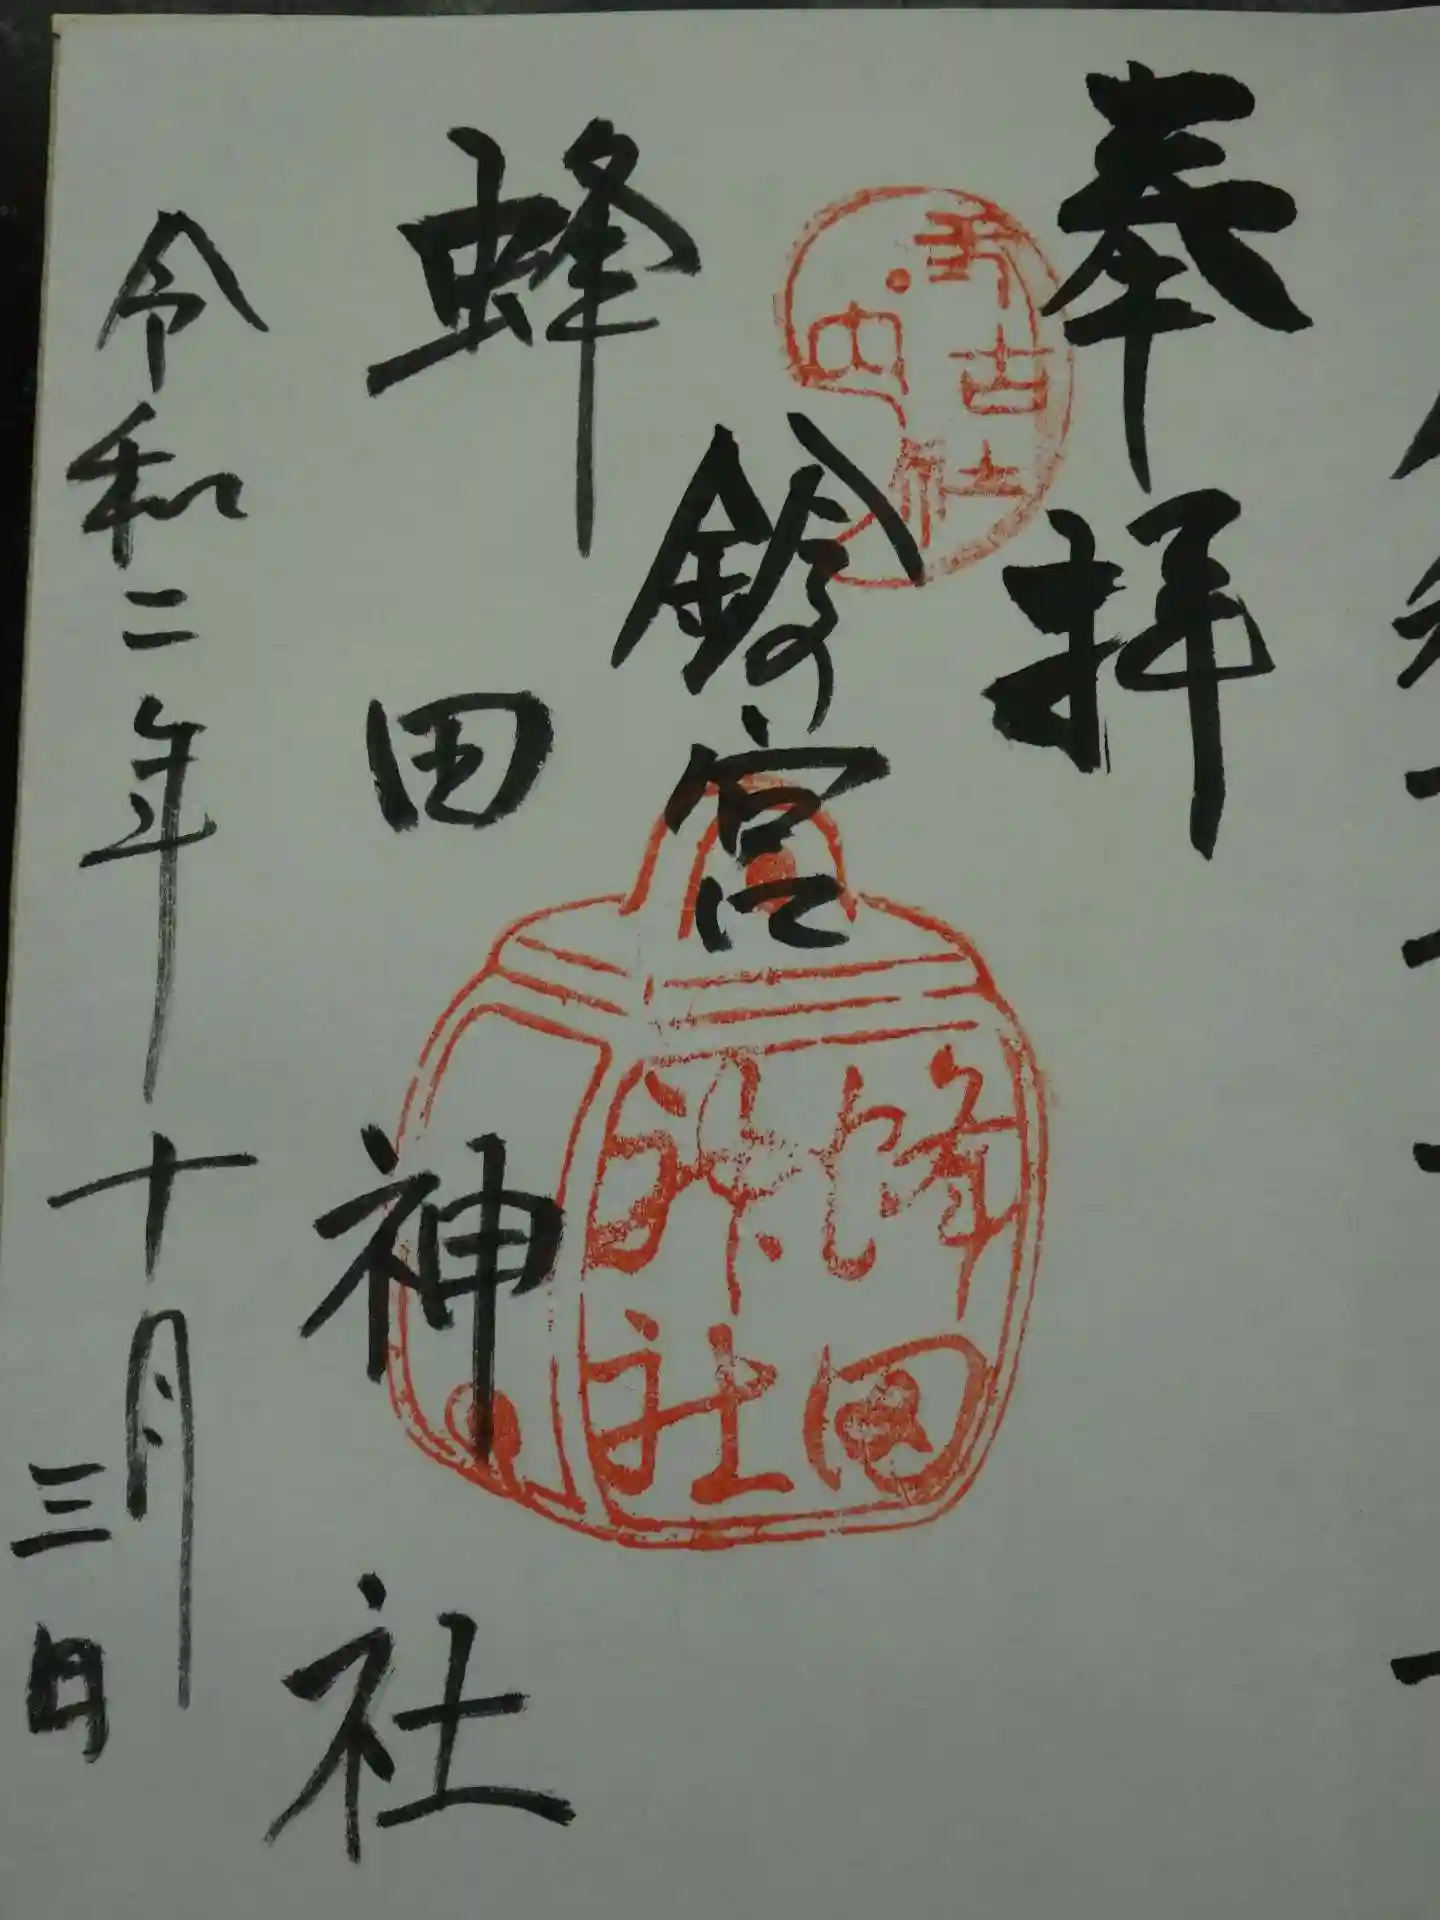 奉拝
鈴宮
蜂田神社
令和二年十月三日
式内
古社
蜂田
神社